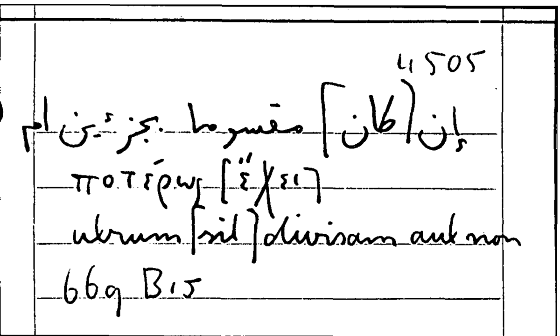 4505
إن [كان] مقسوما بجزئين ام
ποτέρως [ἔχει]
utrum [sit] divisam aut non
669 B15